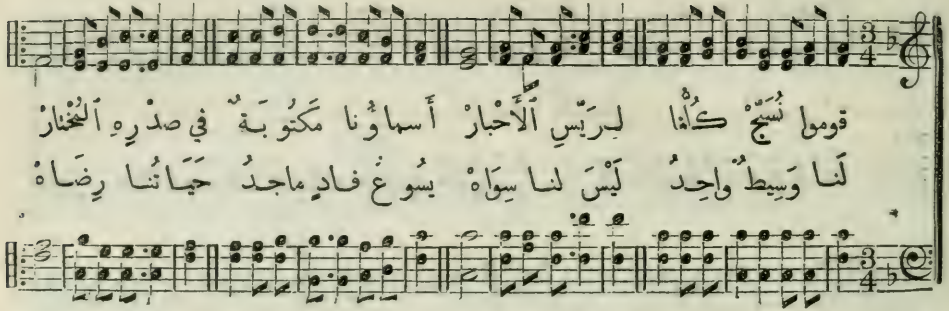 قوموا نُسَبِّحْ كُلُّنا لِرَيِّسِ ٱلْأَحْبارْ أَسماؤُنا مَكتُوبَةٌ في صدْرِهِ ٱلْمُخْتارْ
لَنا وَسِيطٌ واحِدٌ لَيْسَ لنا سِوَاهْ يسُوعُ فادٍ ماجدٌ حَيَاتُنا رِضَاهْ
3 4
3 4